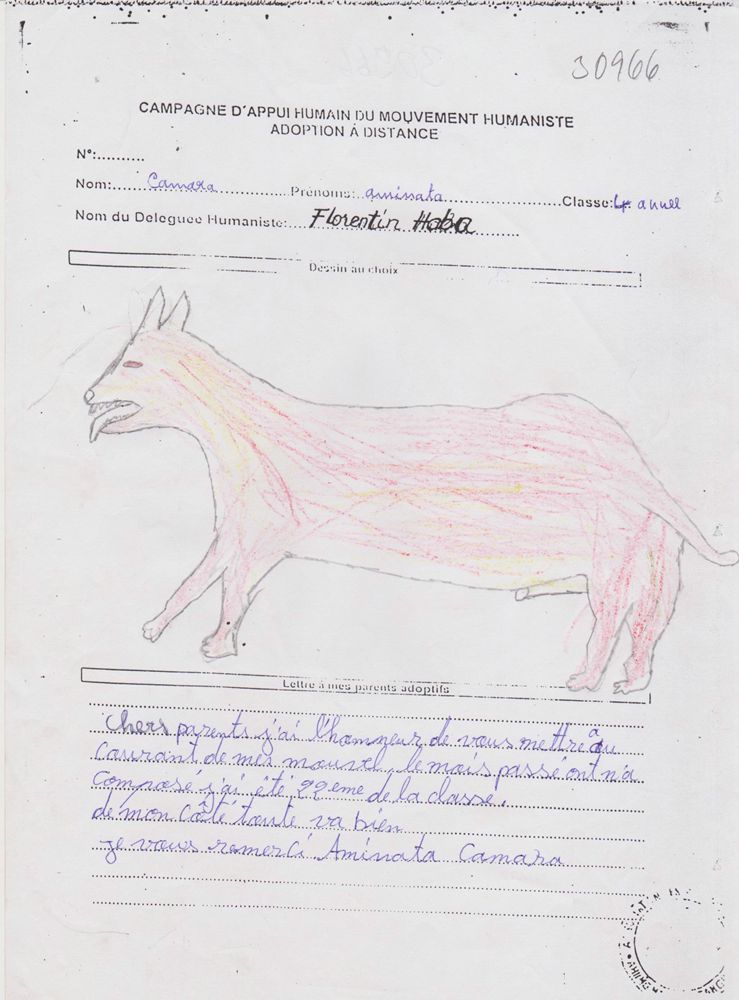 30966
CAMPAGNE D'APPUI HUMAIN DU MOUVEMENT HUMANISTE
ADOPTION À DISTANCE
N°:..........
Nom:......Camara..............Prénoms: aminata........................Classe:4e annee
Nom du Deleguée Humaniste:....Florentin Haba........
Dessin au choix
Lettre à mes parents adoptifs
Chers parents j'ai l'hamneur de vous mettre au
Courant de mes nouvel, le mois passé ont n'a
Composé j'ai été 22eme de la classe.
de mon Côté toute va bien
je vous remerci Aminata Camara